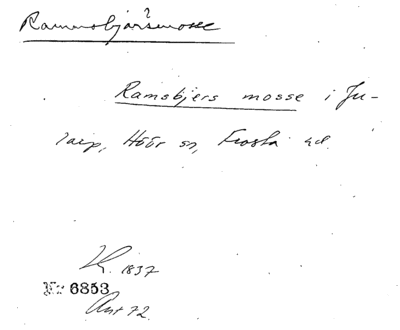 Ramsbjärsmosse
?
Ramsbjers mosse i Ju-
larp, Höör sn, Frosta hd.
K. 1837
Nr 6853
Ant 72.